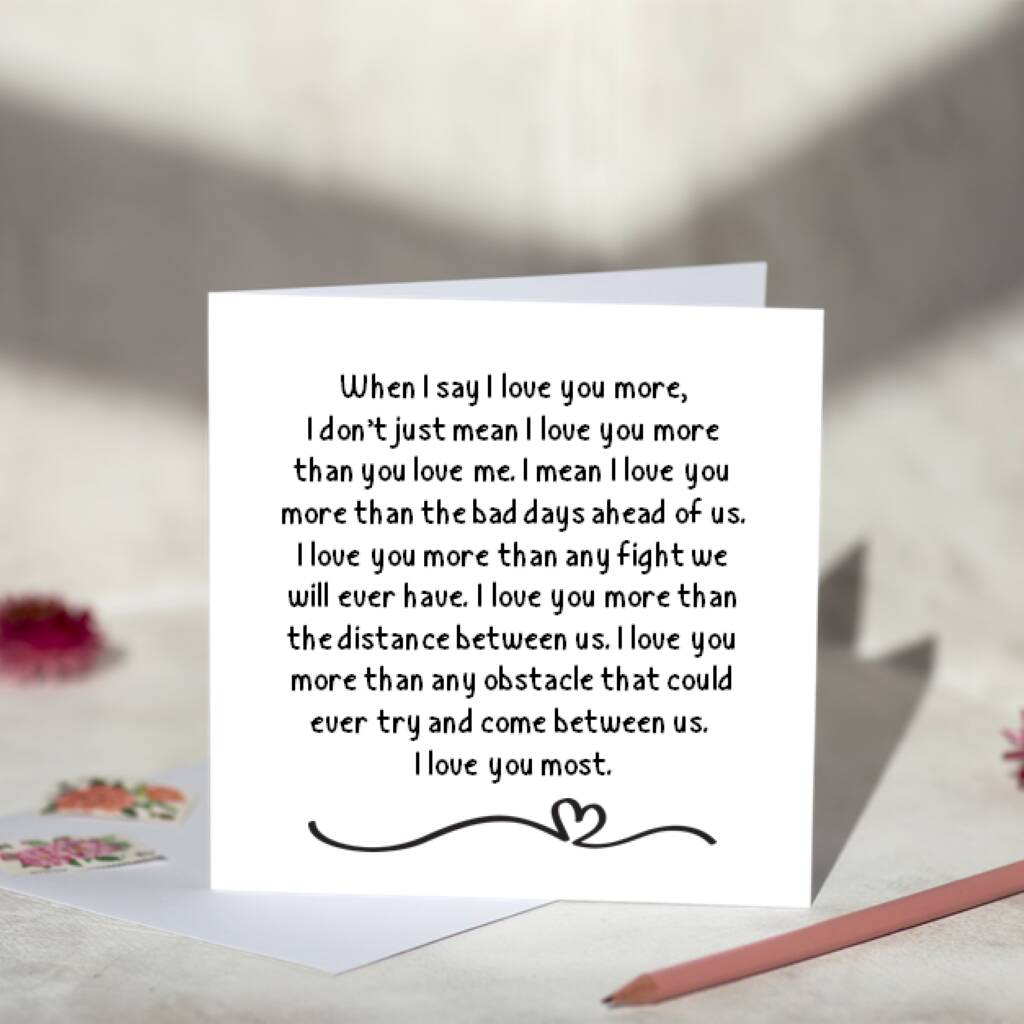 When I say I love you more,
I don't just mean I love you more
than you love me. I mean I love you
more than the bad days ahead of us.
I love you more than any fight we
will ever have. I love you more than
the distance between us. I love you
more than any obstacle that could
ever try and come between us.
I love you most.